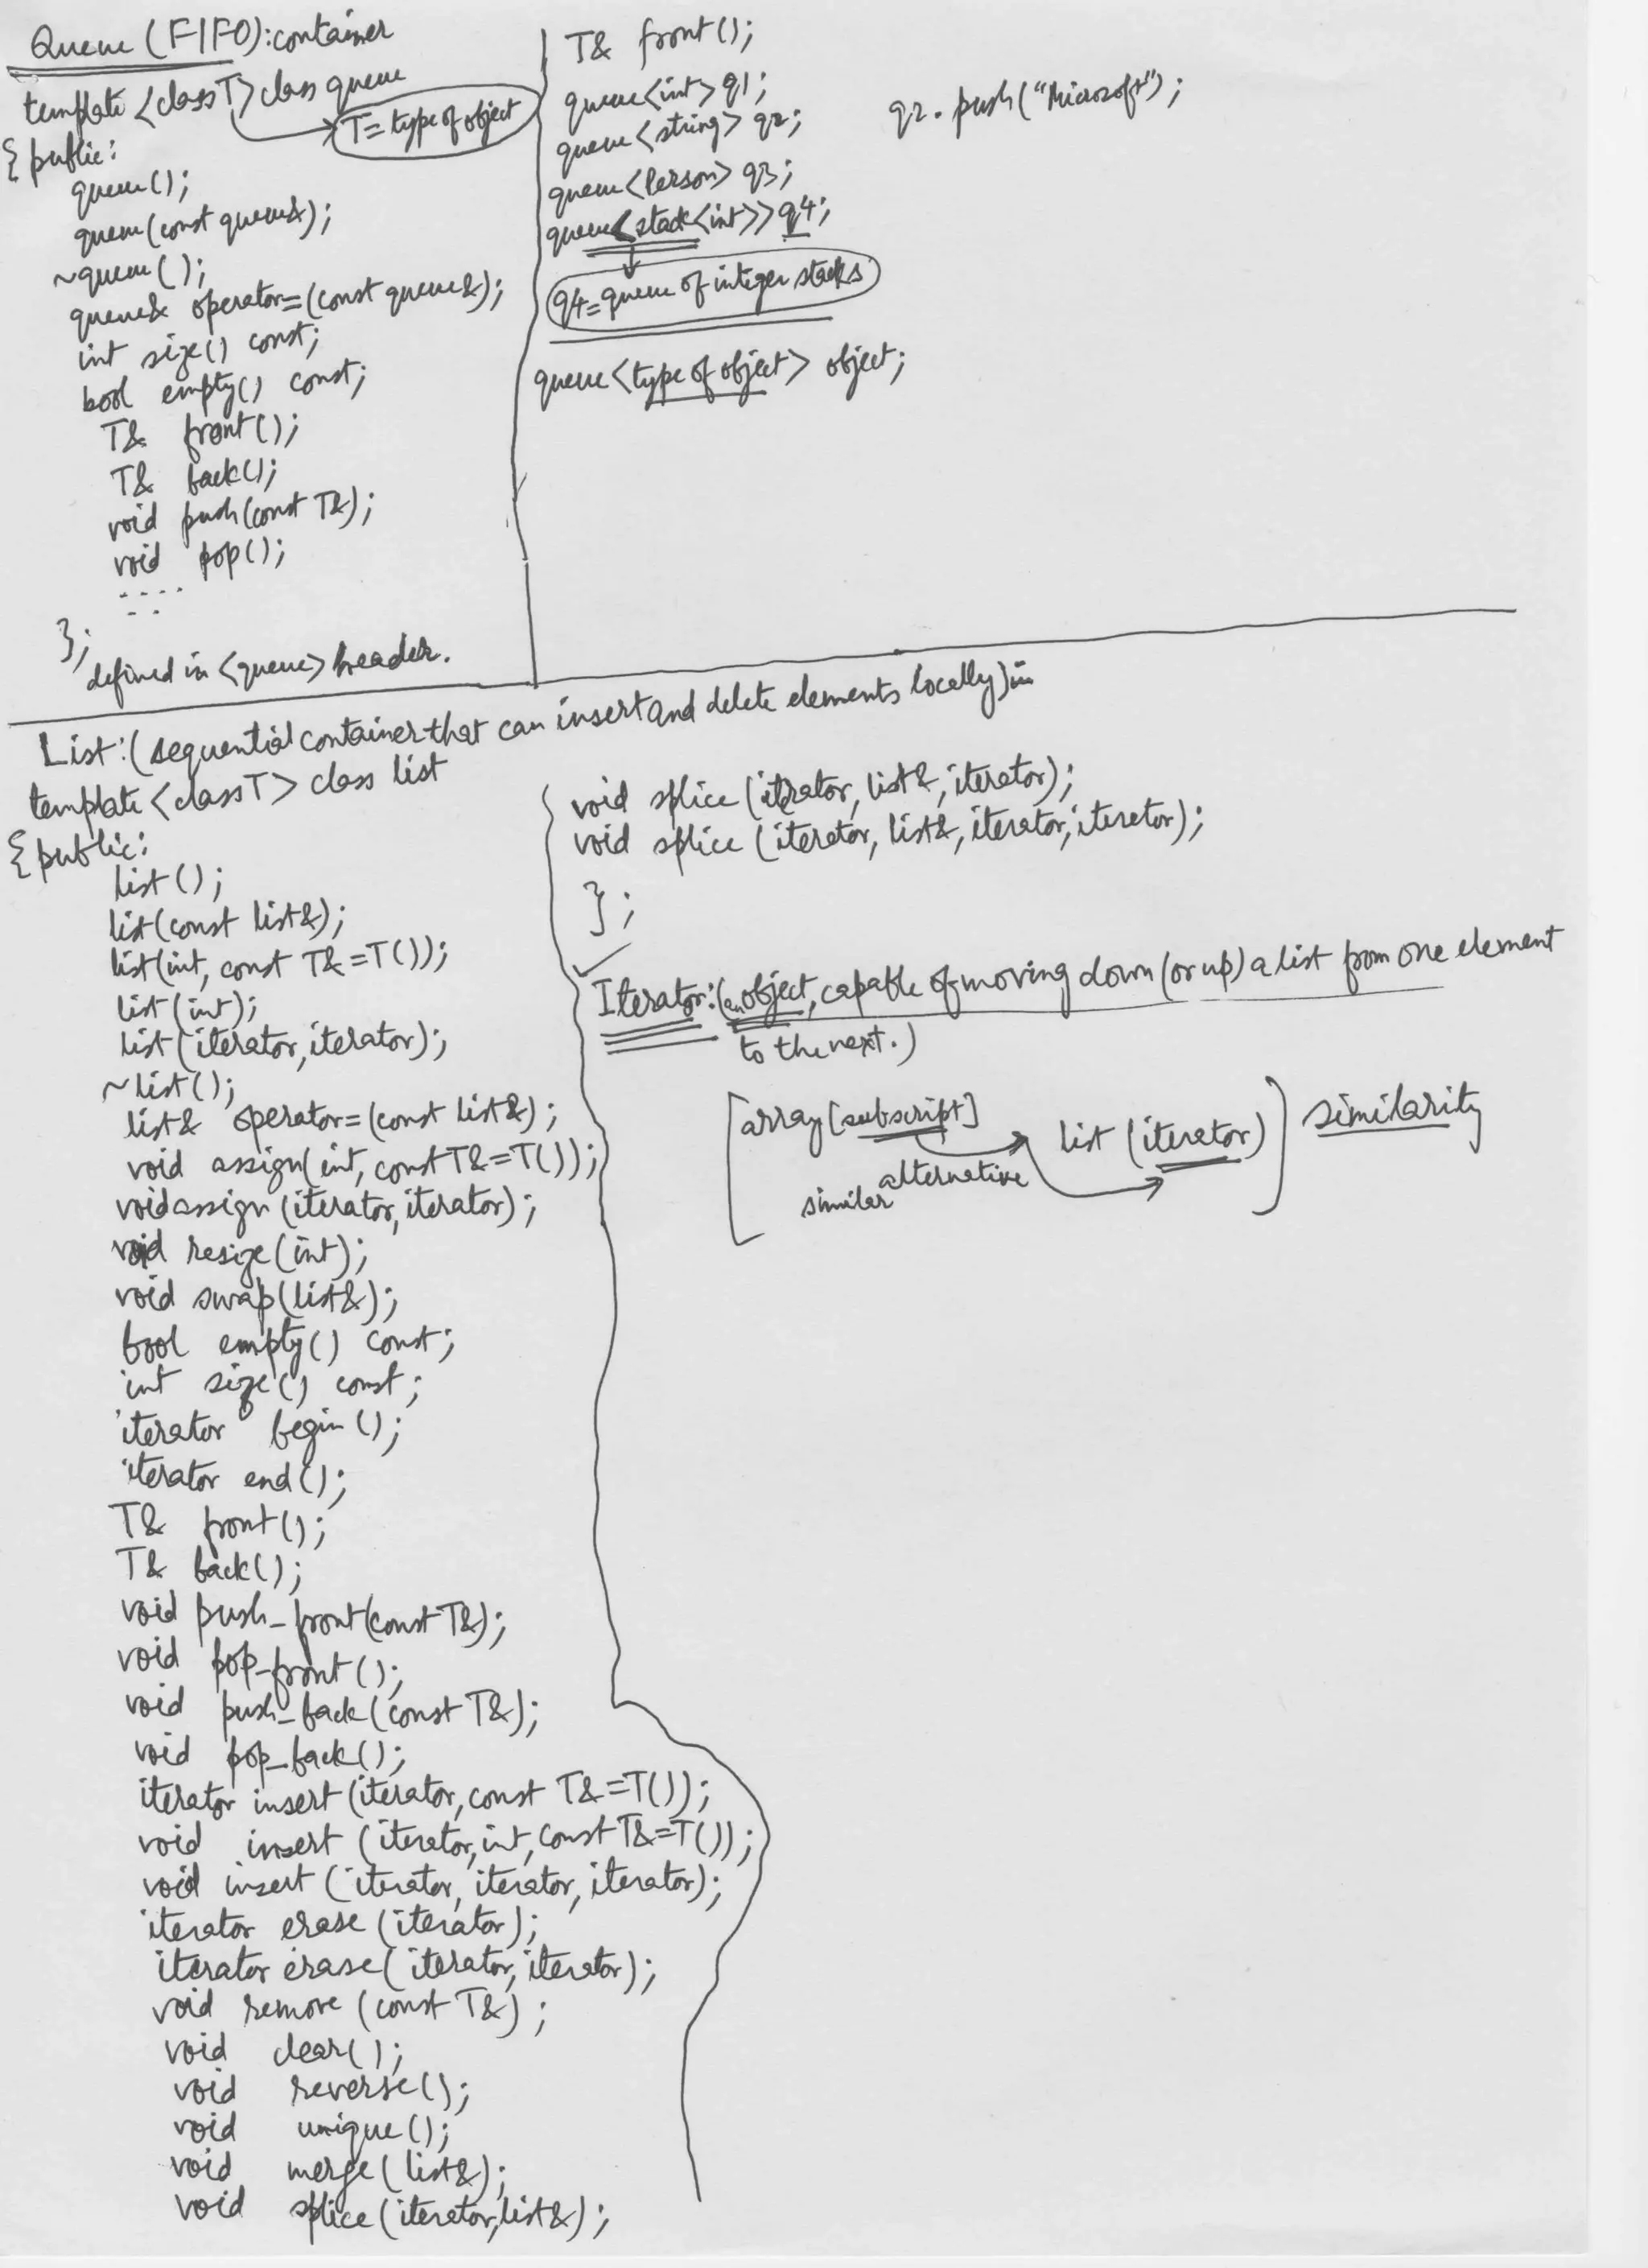 Queue (FIFO): container
template <class T> class queue
T= type of object
{ public:
queue();
queue(const queue&);
~queue();
queue& operator=(const queue&);
int size() const;
bool empty() const;
T& front();
T& back();
void push(const T&);
void pop();
....
--
};
defined in <queue> header.
T& front();
queue<int> q1;
queue<string> q2;
queue<Person> q3;
queue<stack<int>> q4;
q4=queue of integer stacks
queue <type of object> object;
q2.push("Microsoft");
List:(sequential container that can insert and delete elements locally) in
template <class T> class list
{ public:
list();
list(const list&);
list(int, const T&=T());
list(int);
list(iterator,iterator);
~list();
list& operator=(const list&);
void assign(int, const T&=T());
void assign(iterator,iterator);
void resize(int);
void swap(list&);
bool empty() const;
int size() const;
iterator begin();
iterator end();
T& front();
T& back();
void push_front(const T&);
void pop_front();
void push_back(const T&);
void pop_back();
iterator insert(iterator,const T&=T());
void insert (iterator,int,const T&=T());
void insert (iterator, iterator, iterator);
iterator erase (iterator);
iterator erase(iterator,iterator);
void remove (const T&);
void clear();
void reverse();
void unique();
void merge(list&);
void splice(iterator,list&);
void splice (iterator, list&, iterator);
void splice (iterator, list&, iterator,iterator);
};
Iterator:(an object, capable of moving down (or up) a list from one element
to the next.)
[array[subscript] list (iterator)] similarity
similar alternative